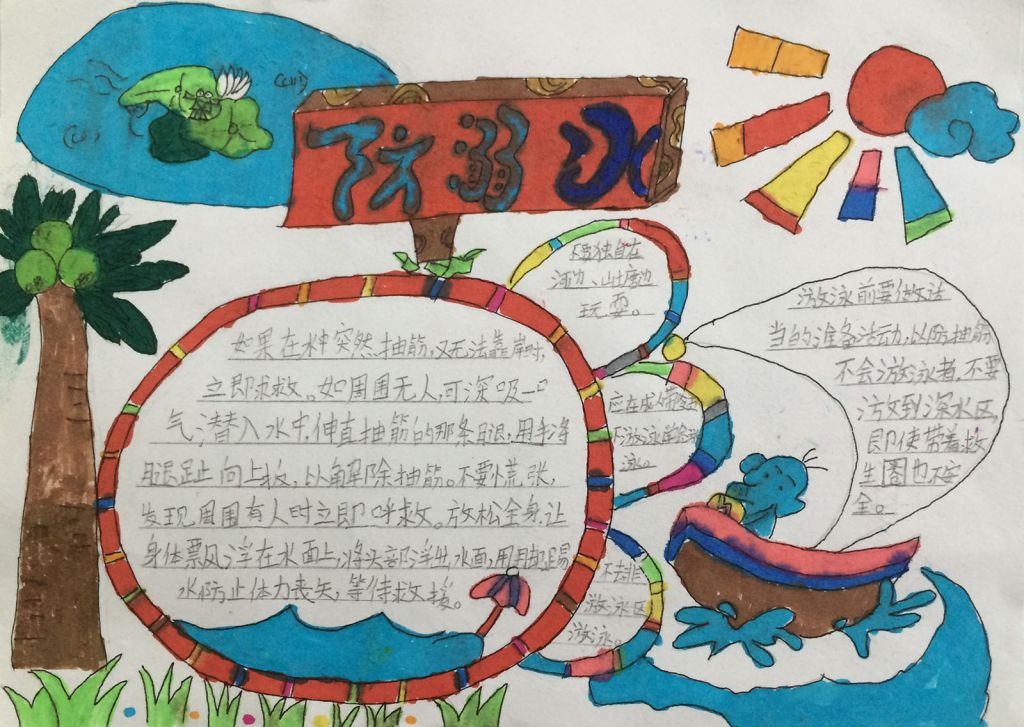 防溺水
不要独自在
河边、山塘边
玩耍。
如果在水中突然抽筋,又无法靠岸时,
立即求救。如周围无人,可深吸一口
气潜入水中,伸直抽筋的那条腿,用手将
腿趾向上扳,以解除抽筋。不要慌张,
发现周围有人时立即呼救。放松全身,让
身体飘浮在水面上,将头部浮出水面,用脚踢
水,防止体力丧失,等待救援。
应在成人带领
下游泳
泳。
不去非
游泳区
游泳。
游泳前要做适
当的准备活动,以防抽筋
不会游泳者,不要
游到深水区,
即使带着救
生圈也不安
全。